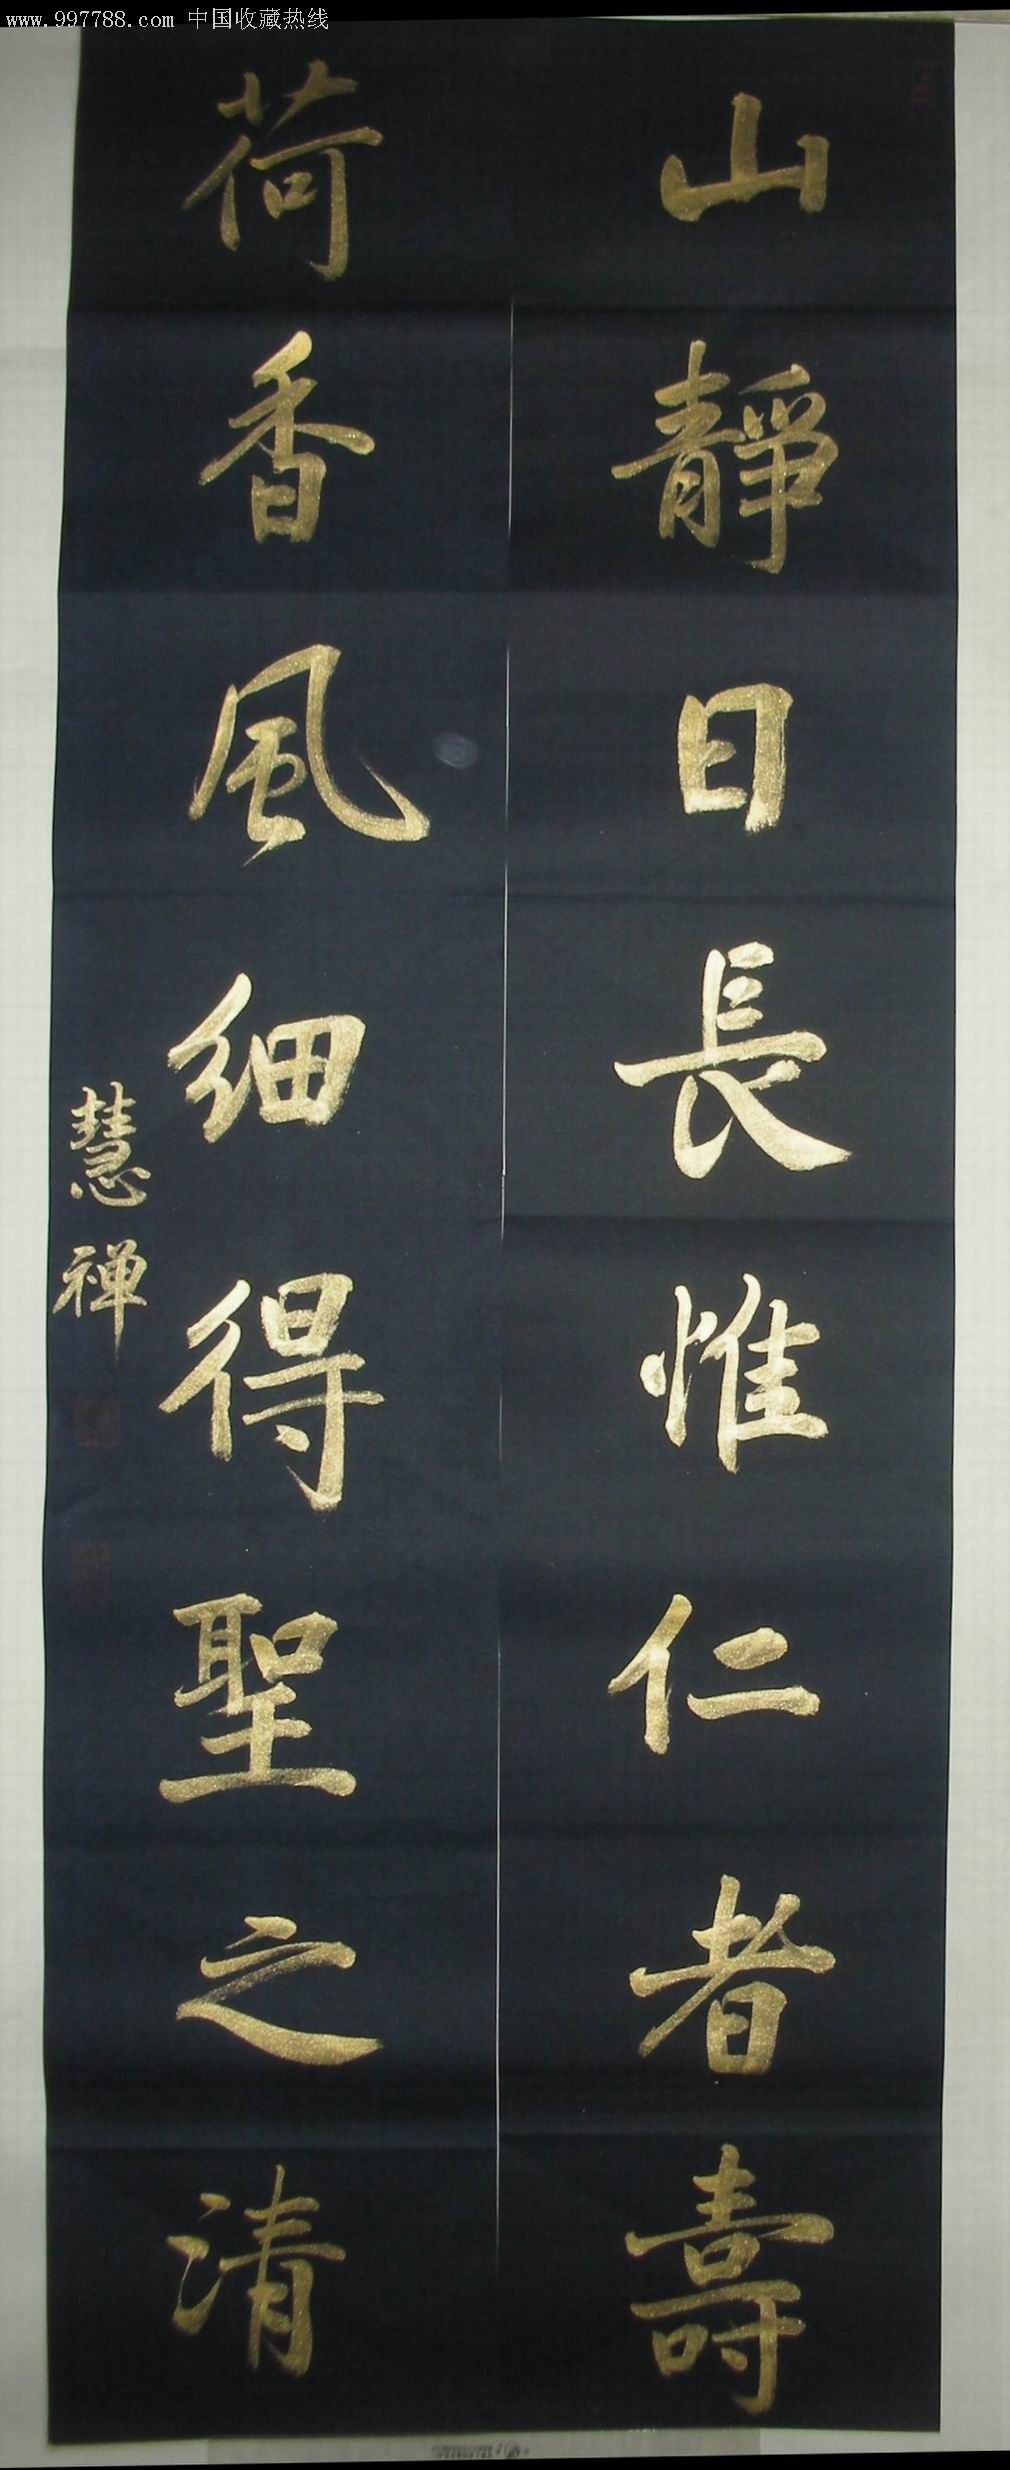 www.997788.com 中国收藏热线
山靜日長惟仁者壽
荷香風細得聖之清
慧禅